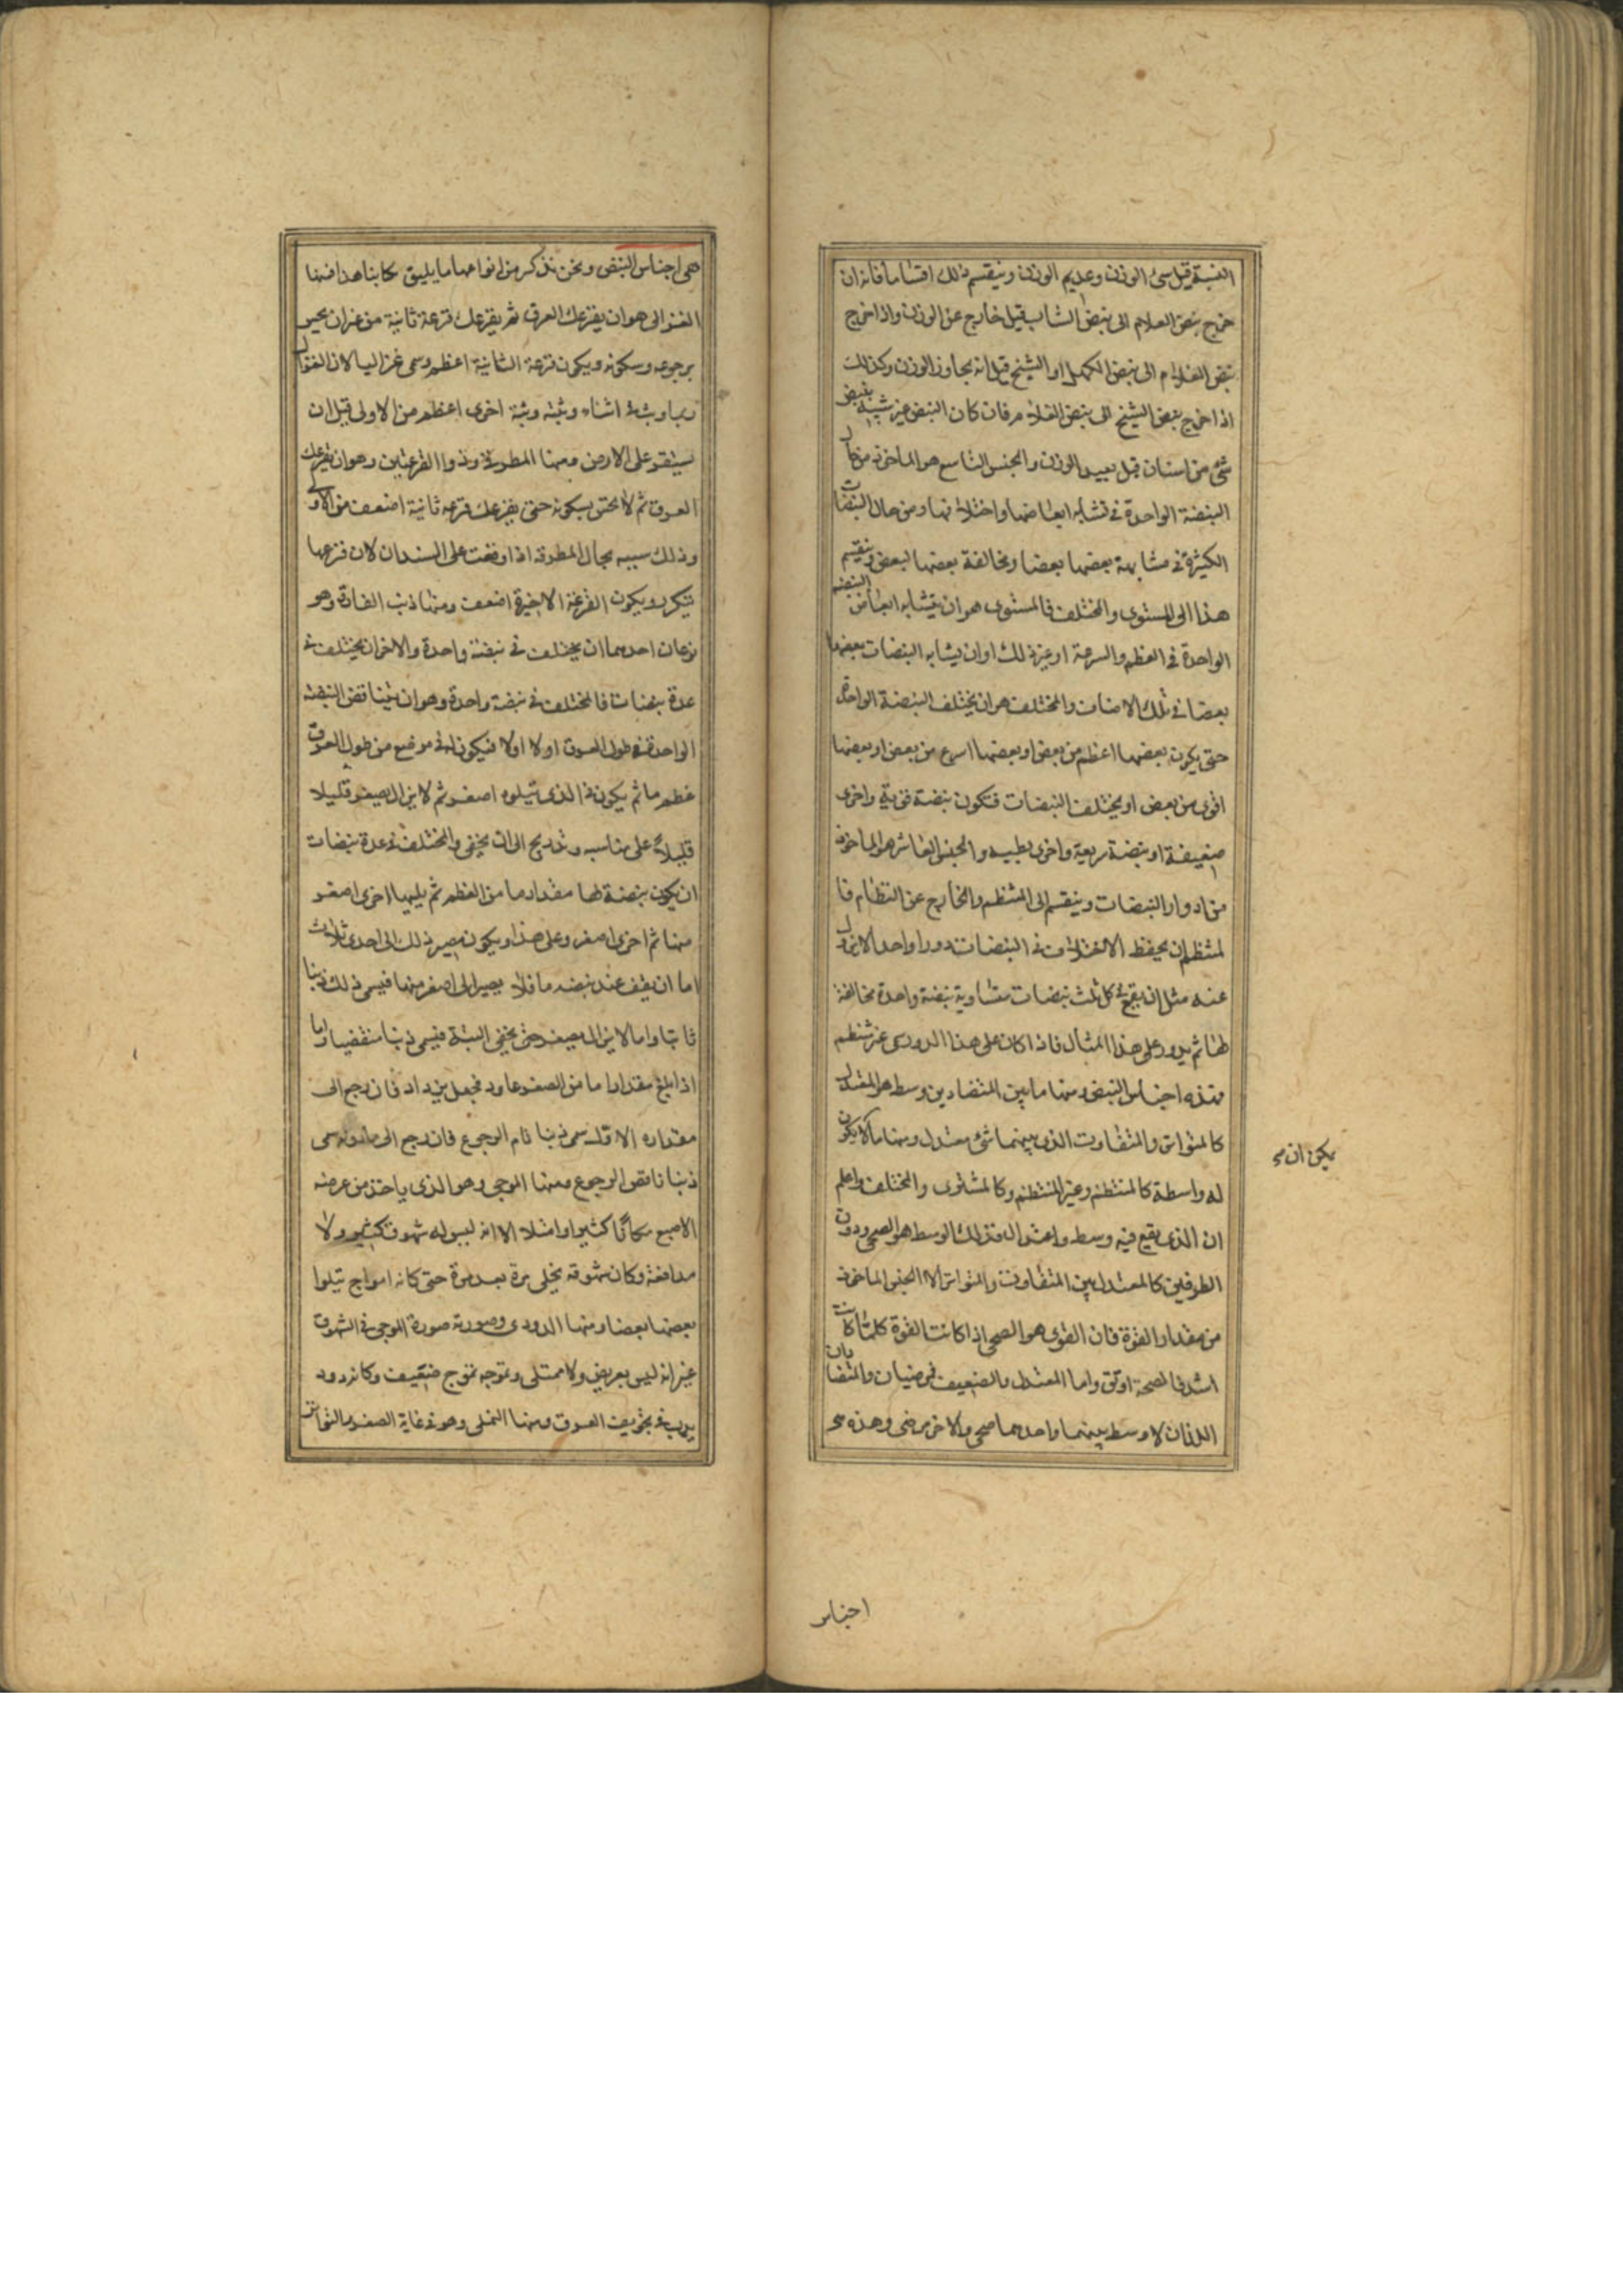 النسبة قيل سئ الوزن وعديم الوزن وينقسم ذلك اقساما فانه ان
خرج نبض الغلام الى نبض الشاب قيل خارج عن الوزن واذا خرج
نبض الغلام الى نبض الكهل او الشيخ قيل انه مجاوز الوزن وكذلك
اذا خرج نبض الشيخ الى نبض الغلام فان كان النبض غير شبيه بنبض
شئ من اسنان قيل بعيد الوزن والجنس التاسع هو الماخوذ من حال
النبضة الواحدة في تشابه ابعاضها واختلافها ومن حال النبضات
الكثيرة في مشابهة بعضها بعضا ومخالفة بعضها لبعض وينقسم
هذا الى المستوى والمختلف فالمستوى هو ان يتشابه ابعاض النبضة
الواحدة في العظم والسرعة او غير ذلك او ان يشابه النبضات بعضها
بعضا في تلك الاضافات والمختلف هو ان يختلف النبضة الواحدة
حتى يكون بعضها اعظم من بعض او بعضها اسرع من بعض او بعضها
اقوى من بعض او يختلف النبضات فتكون نبضة قوية واخرى
ضعيفة او نبضة سريعة واخرى بطيئه والجنس العاشر هو الماخوذ
من ادوار النبضات وينقسم الى المنتظم والخارج عن النظام فا
لمنتظم ان يحفظ الاختلاف في النبضات دورا واحدا لا يزول
عنه مثل ان يقع في كل ثلث نبضات متساوية نبضة واحدة مخالفة
لها ثم يدور على هذا المثال فاذا كان على هذا الدور سمى غير منتظم
فهذه اجناس النبض ومنها ما بين المتضادين وسط هو المعتدل
كالمتواتر والمتفاوت الذى بينهما شئ معتدل ومنها ما لا يكون
له واسطة كالمنتظم وغير المنتظم وكالمستوى والمختلف واعلم
ان الذى يقع فيه وسط واعتدال فذلك الوسط هو الصحى ودون
الطرفين كالمعتدل بين المتفاوت والمتواتر الا الجنس الماخوذ
من مقدار القوة فان القوى هو الصحى اذا كانت القوة كلما كانت
اشد فالصحة اوثق واما المعتدل والضعيف فمرضيان والمتضادان
اللذان لا وسط بينهما واحدهما صحى والاخر مرضى وهذه هى
يمكن ان
اجناس
هى اجناس النبض ونحن نذكر من انواعها ما يليق بكتابنا هذا فمنها
الغزالى هو ان يقرعك العرق ثم يقرعك قرعة ثانية من غير ان يحس
برجوعه وسكونه ويكون قرعة الثانية اعظم وسمى غزاليا لان الغزال
ربما وثب في اثناء وثبته وثبة اخرى اعظم من الاولى قبل ان
يستقر على الارض ومنها المطرقى وذوا القرعتين وهو ان يقرعك
العرق ثم لا تحس بسكونه حتى يقرعك قرعة ثانية اضعف من الاولى
وذلك سببه بحال المطرقة اذا وقعت على السندان لان قرعها
يتكرر ويكون القرعة الاخيرة اضعف ومنها ذنب الفارة وهو
نوعان احدهما ان يختلف في نبضة واحدة والاخر ان يختلف في
عدة نبضات فالمختلف في نبضة واحدة وهو ان يتناقص النبضة
الواحدة في طول العرق اولا اولا فيكون له في موضع من طول العرق
عظم ما ثم يكون في الذى يتلوه اصغر ثم لا يزال يصغر قليلا
قليلا على مناسبة وتدريج الى ان يخفى والمختلف في عدة نبضات
ان يكون نبضة لها مقدار ما من العظم ثم يليها اخرى اصغر
منها ثم اخرى اصغر وعلى هذا ويكون مصير ذلك الى احدى ثلاث
اما ان يقف عند نبضه ما فلا يصير الى اصغر منها فيسمى ذلك ذنبا
ثابتا واما لا يزال يصغر حتى يخفى البتة فيسمى ذنبا منقضيا واما
اذا بلغ مقدارا ما من الصغر عاود فجعل يزداد فان رجع الى
مقداره الاول سمى ذنبا تام الرجوع فان رجع الى ما دونه سمى
ذنبا ناقص الرجوع ومنها الموجى وهو الذى ياخذ من عرضه
الاصبع مكانا كثيرا وامتلاء الا انه ليس له شهوق كثير ولا
مدافعة وكان شهوقه يخلى مرة بعد مرة حتى كانه امواج يتلوا
بعضها بعضا ومنها الدودى وصورته صورة الموجى في الشهوق
غير انه ليس بعريض ولا ممتلى وتموجه تموج ضعيف وكانه دود
يدب في تجويف العرق ومنها النملى وهو في غاية الصغر والتواتر